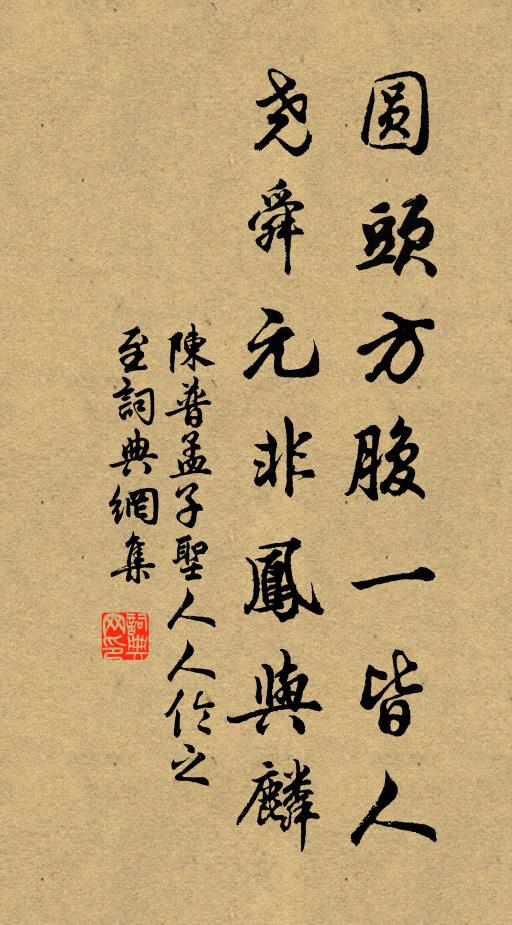 圆頭方腹一皆人
尧舜元非鳳與麟
陳普孟子聖人人伦之
至詞典網集
詞典網印